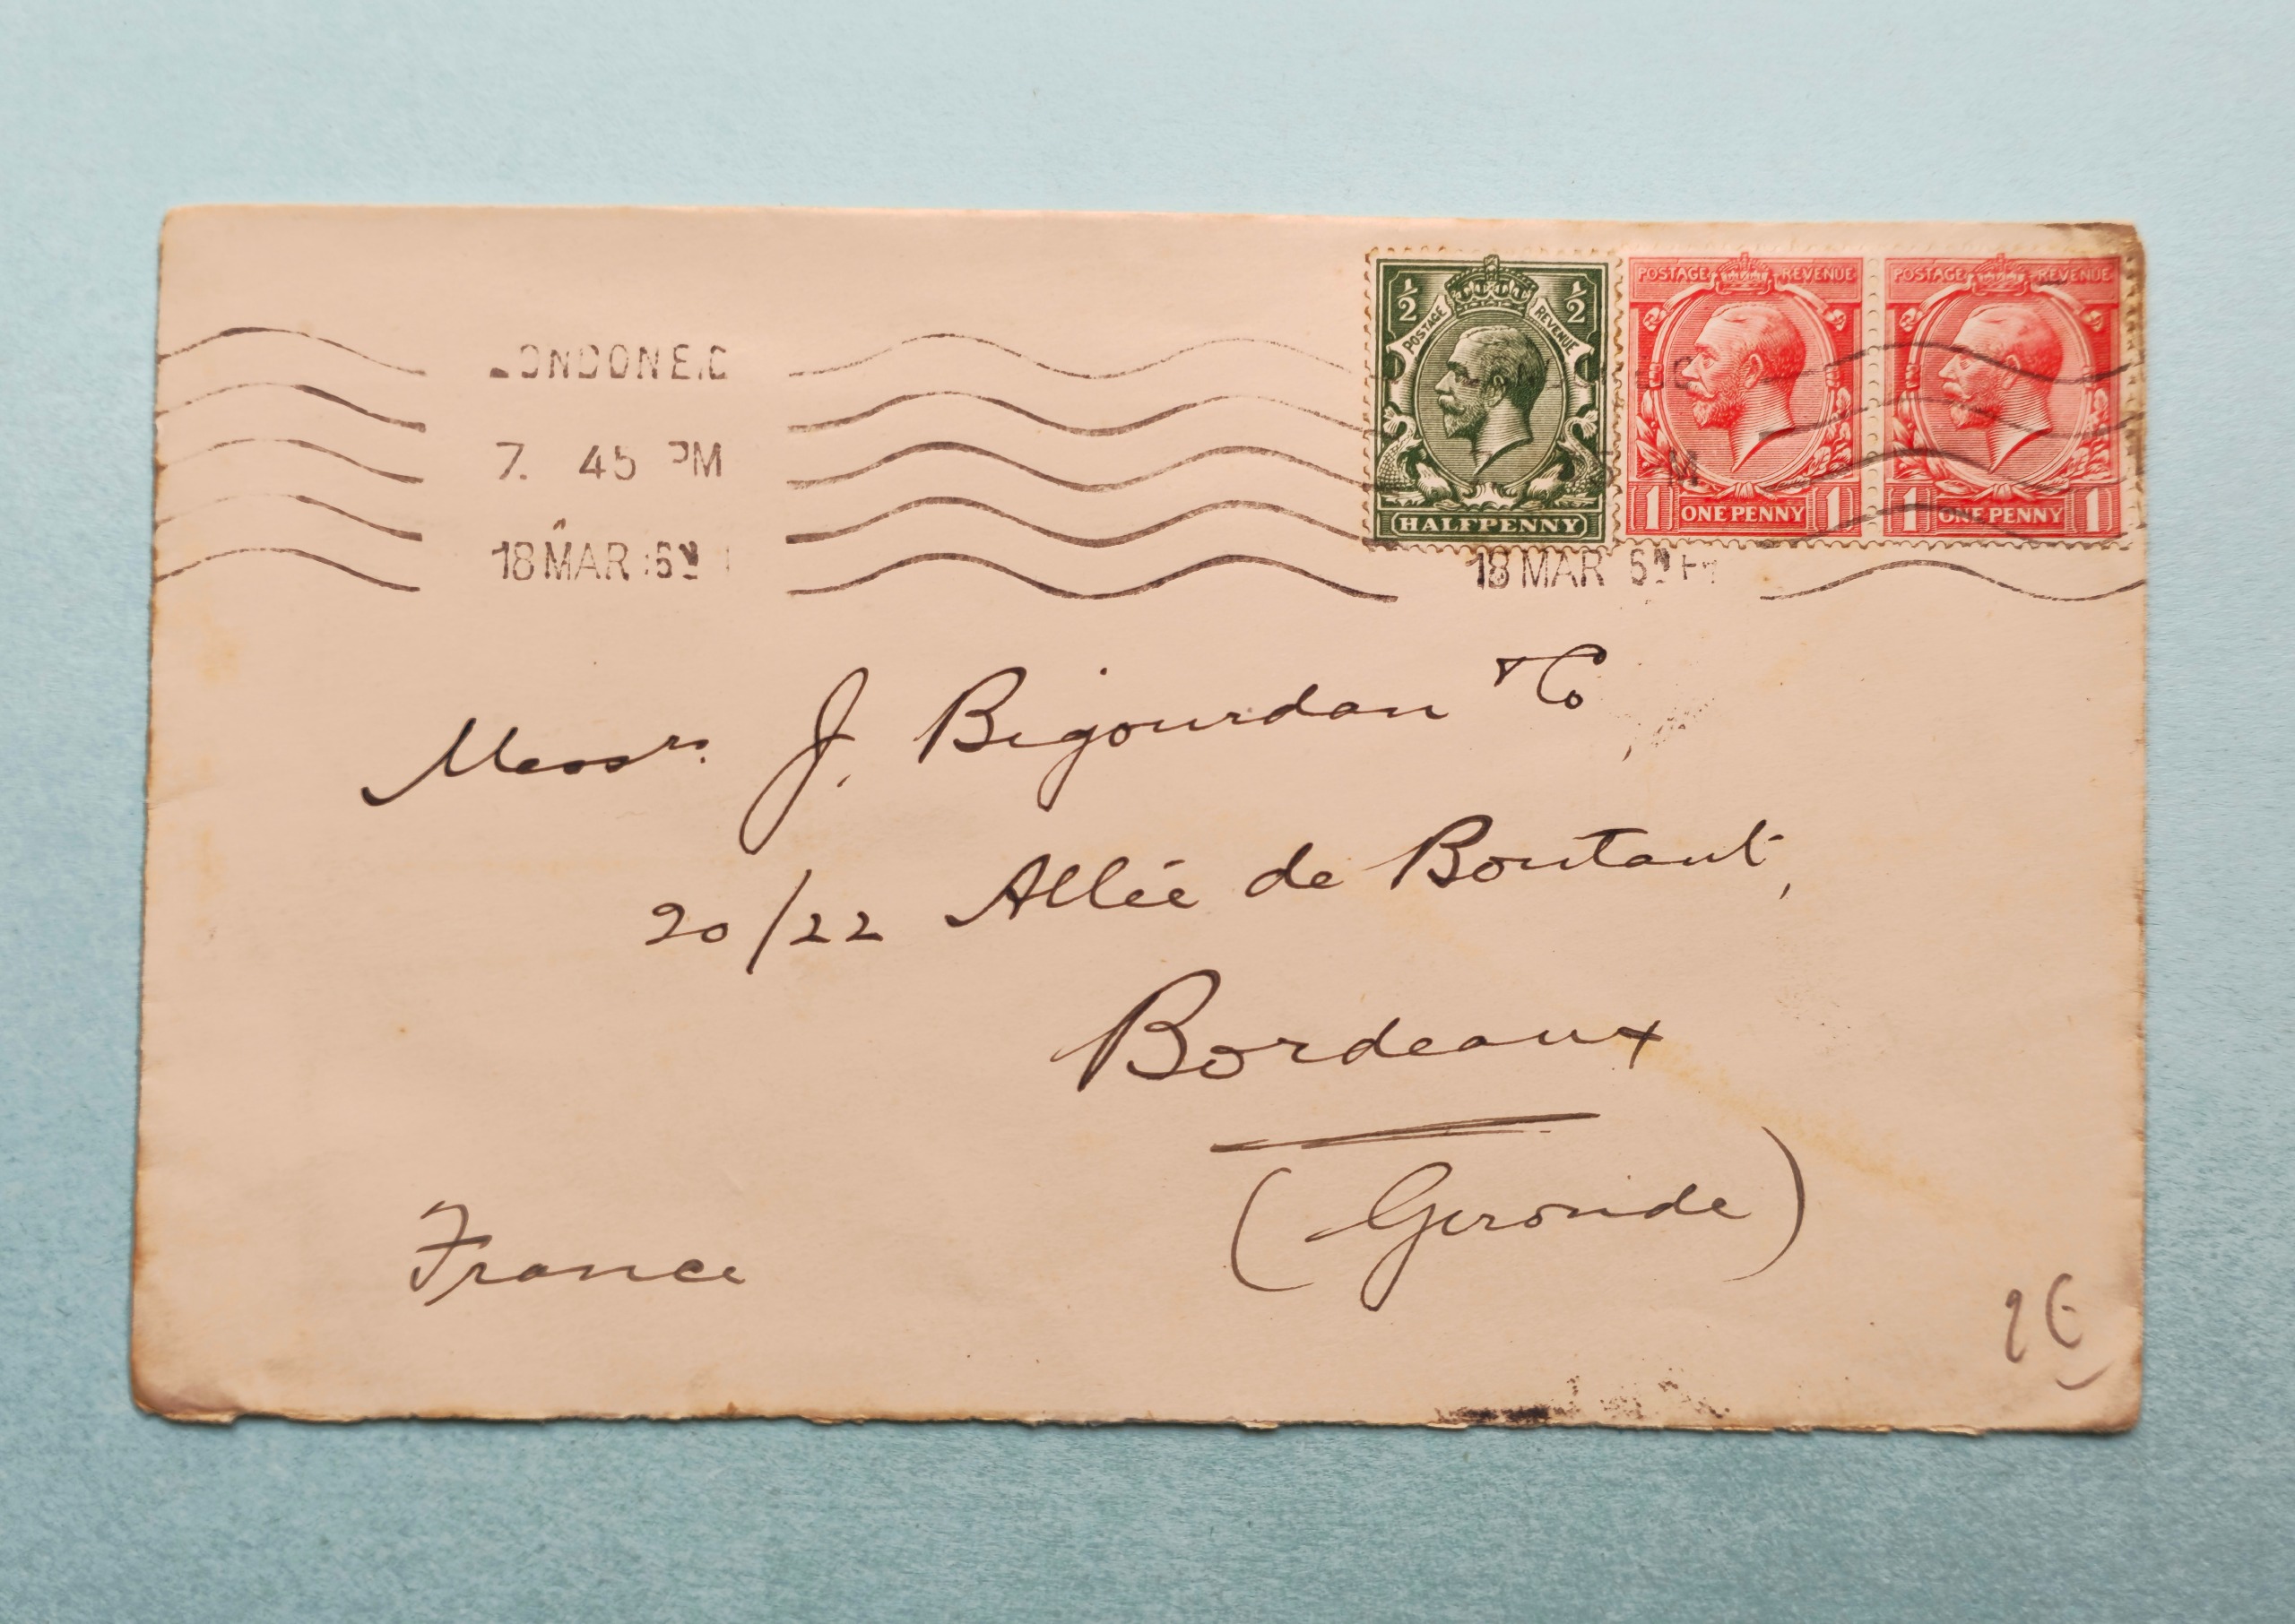 LONDON E.C
7. 45 PM
18 MAR 16
½ ½
POSTAGE REVENUE
HALFPENNY
POSTAGE REVENUE
1 ONE PENNY 1
POSTAGE REVENUE
1 ONE PENNY 1
18 MAR
Messrs. J. Bigourdan & Co,
20/22 Allée de Boutaut,
Bordeaux
(Gironde)
France